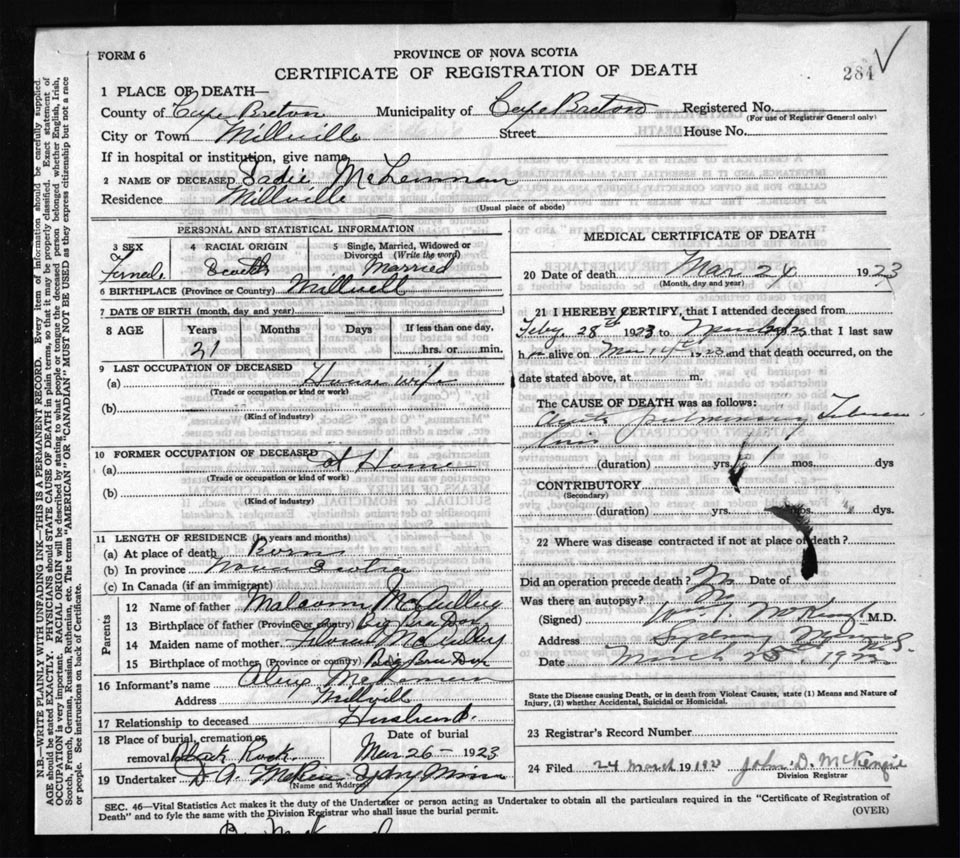 FORM 6
PROVINCE OF NOVA SCOTIA
CERTIFICATE OF REGISTRATION OF DEATH
284
1 PLACE OF DEATH—
County of Cape Breton Municipality of Cape Breton Registered No.
(For use of Registrar General only)
City or Town Millville Street House No.
If in hospital or institution, give name
2 NAME OF DECEASED Sadie McKinnon
Residence Millville
(Usual place of abode)
PERSONAL AND STATISTICAL INFORMATION
3 SEX 4 RACIAL ORIGIN 5 Single, Married, Widowed or Divorced (Write the word)
Female Scotch Married
6 BIRTHPLACE (Province or Country)
7 DATE OF BIRTH (month, day and year)
8 AGE Years Months Days If less than one day,
21 hrs. or min.
9 LAST OCCUPATION OF DECEASED
(a) House wife
(Trade or occupation or kind of work)
(b)
(Kind of industry)
10 FORMER OCCUPATION OF DECEASED
(a) at Home
(Trade or occupation or kind of work)
(b)
(Kind of industry)
11 LENGTH OF RESIDENCE (In years and months)
(a) At place of death Born
(b) In province Nova Scotia
(c) In Canada (if an immigrant)
Parents
12 Name of father Malcolm
13 Birthplace of father (Province or country) Big Bras Dor
14 Maiden name of mother
15 Birthplace of mother (Province or country) Big Bras Dor
16 Informant's name
Address Millvill
17 Relationship to deceased Husband.
18 Place of burial, cremation or removal Date of burial
Black Rock Mar 26 - 1923
19 Undertaker D. A. Sydney Mines
(Name and Address)
MEDICAL CERTIFICATE OF DEATH
20 Date of death Mar 24 1923
(Month, day and year)
21 I HEREBY CERTIFY, that I attended deceased from
Feby 28th 1923 to that I last saw
h alive on 1923 and that death occurred, on the
date stated above, at m.
The CAUSE OF DEATH was as follows:
Pulmonary
(duration) yrs. mos. dys
CONTRIBUTORY
(Secondary)
(duration) yrs. mos. dys.
22 Where was disease contracted if not at place of death?
Did an operation precede death? No Date of
Was there an autopsy? No
(Signed) M.D.
Address Sydney Mines N.S.
Date March 25
State the Disease causing Death, or in death from Violent Causes, state (1) Means and Nature of
Injury, (2) whether Accidental, Suicidal or Homicidal.
23 Registrar's Record Number
24 Filed 24 March 1923 John D. McKenzie
Division Registrar
SEC. 46—Vital Statistics Act makes it the duty of the Undertaker or person acting as Undertaker to obtain all the particulars required in the "Certificate of Registration of
Death" and to fyle the same with the Division Registrar who shall issue the burial permit.
(OVER)
N.B.—WRITE PLAINLY WITH UNFADING INK—THIS IS A PERMANENT RECORD. Every item of information should be carefully supplied.
AGE should be stated EXACTLY. PHYSICIANS should STATE CAUSE OF DEATH in plain terms, so that it may be properly classified. Exact statement of
OCCUPATION is very important. RACIAL ORIGIN will be described by stating to what people or tongue the deceased person belonged whether English, Irish,
Scotch, French, German, Russian, Ruthenian, etc. The terms "AMERICAN" OR "CANADIAN" MUST NOT BE USED as they express citizenship but not a race
or people. See instructions on back of Certificate.